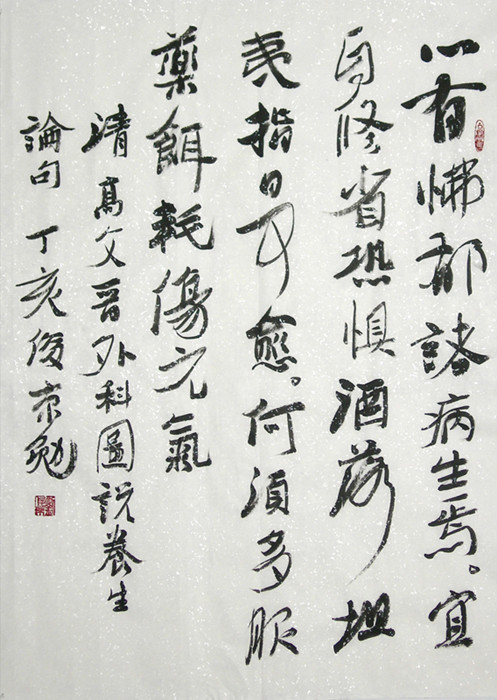 心有怫郁諸病生焉。宜
自修省恐惧洒落坦
夷指日可愈。何須多服
藥餌耗傷元氣
清高文晉外科圖說養生
論句丁亥俊京勉